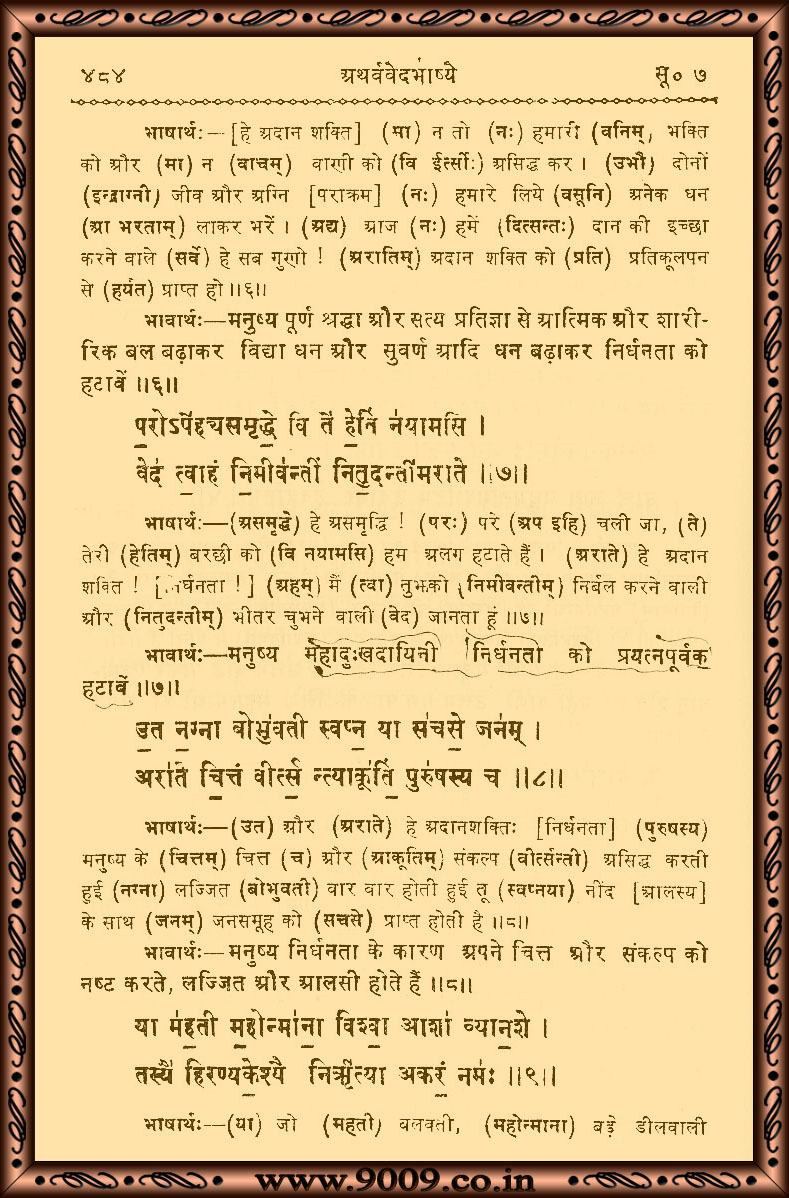 ४८४ अथर्ववेदभाष्ये सू० ७
भाषार्थः—[हे अदान शक्ति] (मा) न तो (नः) हमारी (वनिम्) भक्ति
को और (मा) न (वाचम्) वाणी को (वि ईर्त्सीः) असिद्ध कर। (उभौ) दोनों
(इन्द्राग्नी) जीव और अग्नि [पराक्रम] (नः) हमारे लिये (वसूनि) अनेक धन
(आ भरताम्) लाकर भरें। (अद्य) आज (नः) हमें (दित्सन्तः) दान की इच्छा
करने वाले (सर्वे) हे सब गुणो ! (अरातिम्) अदान शक्ति को (प्रति) प्रतिकूलपन
से (हर्यत) प्राप्त हो॥६॥
भावार्थः—मनुष्य पूर्ण श्रद्धा और सत्य प्रतिज्ञा से आत्मिक और शारी-
रिक बल बढ़ाकर विद्या धन और सुवर्ण आदि धन बढ़ाकर निर्धनता को
हटावें॥६॥
प॒रोऽपे॑ह्यसमृद्धे॒ वि ते॑ हे॒तिं न॑यामसि।
वेद॑ त्वा॒हं नि॒मीव॑न्तीं नितु॒दन्ती॑मराते॥७॥
भाषार्थः—(असमृद्धे) हे असमृद्धि ! (परः) परे (अप इहि) चली जा, (ते)
तेरी (हेतिम्) बरछी को (वि नयामसि) हम अलग हटाते हैं। (अराते) हे अदान
शक्ति ! [निर्धनता !] (अहम्) मैं (त्वा) तुझको (निमीवन्तीम्) निर्बल करने वाली
और (नितुदन्तीम्) भीतर चुभने वाली (वेद) जानता हूं॥७॥
भावार्थः—मनुष्य महादुःखदायिनी निर्धनता को प्रयत्नपूर्वक
हटावें॥७॥
उ॒त न॒ग्ना बोभु॑वती स्वप्न॒या स॑चसे॒ जन॑म्।
अरा॑ते चि॒त्तं वीर्त्स॒न्त्याकू॑तिं॒ पुरु॑षस्य च॥८॥
भाषार्थः—(उत) और (अराते) हे अदानशक्तिः [निर्धनता] (पुरुषस्य)
मनुष्य के (चित्तम्) चित्त (च) और (आकूतिम्) संकल्प (वीर्त्सन्ती) असिद्ध करती
हुई (नग्ना) लज्जित (बोभुवती) वार वार होती हुई तू (स्वप्नया) नींद [आलस्य]
के साथ (जनम्) जनसमूह को (सचसे) प्राप्त होती है॥८॥
भावार्थः—मनुष्य निर्धनता के कारण अपने चित्त और संकल्प को
नष्ट करते, लज्जित और आलसी होते हैं॥८॥
या म॑ह॒ती म॒होन्मा॑ना॒ विश्वा॒ आशा॑ व्यान॒शे।
तस्यै॑ हिरण्यके॒श्यै निर्ऋ॑त्या अकरं॒ नमः॑॥९॥
भाषार्थः—(या) जो (महती) बलवती, (महोन्माना) बड़े डीलवाली
www.9009.co.in